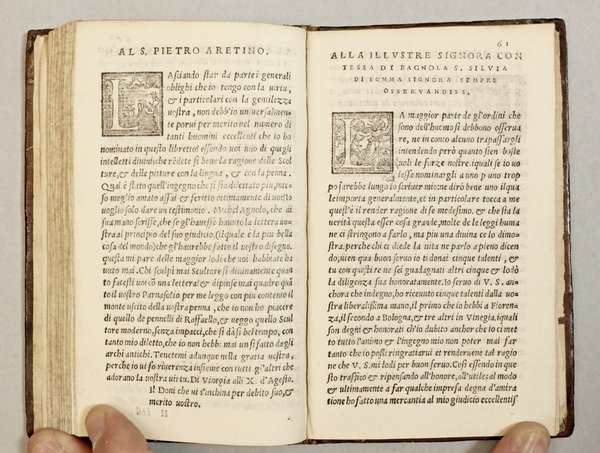 AL S. PIETRO ARETINO.
LAsciando star da parte i generali
oblighi che io tengo con la uirtu,
& i particolari con la gentilezza
uostra, non debb'io uniuersalmen-
te porui per merito nel numero di
tanti huomini eccellenti che io ho
nominato in questo libretto? essendo uoi uno di quegli
intelletti diuini che rēdete sì bene la ragione delle Scol
ture, & delle pitture con la lingua, & con la penna.
Qual è stato quell'ingegno che si sia dilettato piu, me-
glio amato assai & scritto ottimamente di uoi? Io
uoglio solo dare un testimonio. Michel Agnolo, che di
sua mano scrisse, che se gl'hauesse hauuto la lettera uo-
stra al principio del suo giudicio, (il quale è la piu bella
cosa del mondo) che gl'haurebbe fatto il uostro disegno.
questa mi pare delle maggior lodi che uoi habbiate ha
uuto mai. Chi sculpì mai Scultore sì diuinamente quan
to facesti uoi cō una lettera? & dipinse mai quadro quā
to il uostro Parnaso? io per me leggo con piu contento il
monte uscito della uostra penna, che io non ho piacere
di quello de pennelli di Raffaello, & ueggo quello Scul
tore moderno, senza impacci, che si dà sì bel tempo, con
tanto mio diletto, che io non hebbi mai un sì fatto dagli
archi antichi. Tenetemi adunque nella gratia uostra,
perche io ui fo riuerenza insieme con tutti gl'altri che
adorano la uostra uirtu. Di Vinegia alli X. d'Agosto.
Il Doni che ui s'inchina per debito suo, &
merito uostro.
61
ALLA ILLVSTRE SIGNORA CON
TESSA DI BAGNOLA S. SILVIA
DI SOMMA SIGNORA SEMPRE
OSSERVANDISS.
LA maggior parte de gl'ordini che
sono dell'huomo si debbono osserua
re, ne in conto alcuno trapassargli
intendendo però quanto sien basse
uole le forze nostre. i quali se io uo
lesse nominargli a uno p uno trop
po sarebbe lungo lo scriuer mio: ne dirò bene uno il qua
le importa generalmente, et in particolare tocca a me
quest'è il render ragione di se medesimo. & che sia la
uerità questa esser cosa grande, molte de le leggi huma
ne ci stringono a farlo, ma piu una diuina ce lo dimo-
stra. perche chi ci diede la uita ne parlò a pieno dicen
do, uien qua buon seruo io ti donai cinque talenti, &
tu con questi te ne sei guadagnati altri cinque & lodò
la diligenza sua honoratamente. Io seruo di V. S. an-
chora che indegno, ho riceuuto cinque talenti dalla uo-
stra liberalissima mano, il primo che io hebbi a Fioren-
za, il secondo a Bologna, & tre altri in Vinegia, iquali
son degni & honorati ch'io dubito anchor che io ci met
to tutto l'animo & l'ingegno mio non poter mai far
tanto che io possi ringratiarui et renderuene tal ragio
ne che V. S. mi lodi per buon seruo. Così essendo in que
sto traffico & ripensando all'honore, all'utile; al modo
& ultimamente a far qualche impresa degna d'amira
tione ho fatto una mercantia al mio giudicio eccellentiss